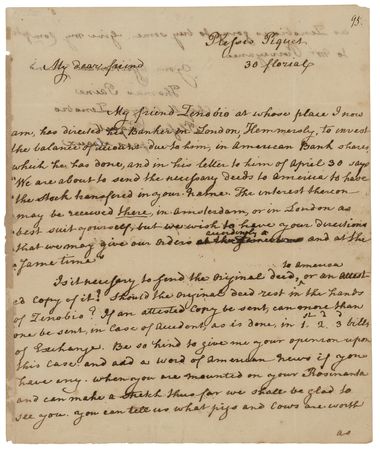 95.
Plessis Piquet
30 florial
My dear friend
My friend Zenobio at whose place I now
am, has directed his Banker in London, Hammersly, to invest
the balance of account due to him, in American Bank shares,
which he has done, and in his letter to him of April 30 says
"We are about to send the necessary deeds to America to have
the stock transfered in your name. The interest thereon
may be received there, in Amsterdam, or in London as
best suit yourself, but we wish to have your directions
that we may give our orders accordingly and at the
same time"
to America
Is it necessary to send the original deed, or an attest-
ed Copy of it? Should the original deed rest in the hands
of Zenobio? If an attested Copy be sent, can more than
one be sent, in Case of Accident, as is done, in 1. 2. 3 bills
of Exchange. Be so kind to give me your openion upon
this Case and add a word of American news if you
have any. when you are mounted on your Rosinanta
and can make a stretch thus far we shall be glad to
see you. you can tell us what pigs and Cows are worth
as